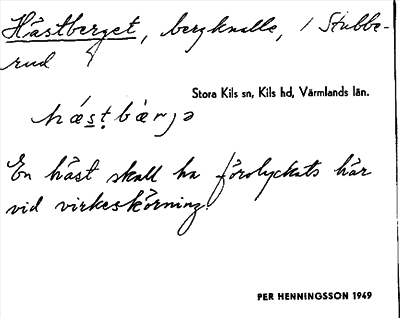 Hästberget, bergknalle, i Stubbe-
rud
Stora Kils sn, Kils hd, Värmlands län.
hä́sṭbær̀jə
En häst skall ha förolyckats här
vid virkeskörning.
PER HENNINGSSON 1949